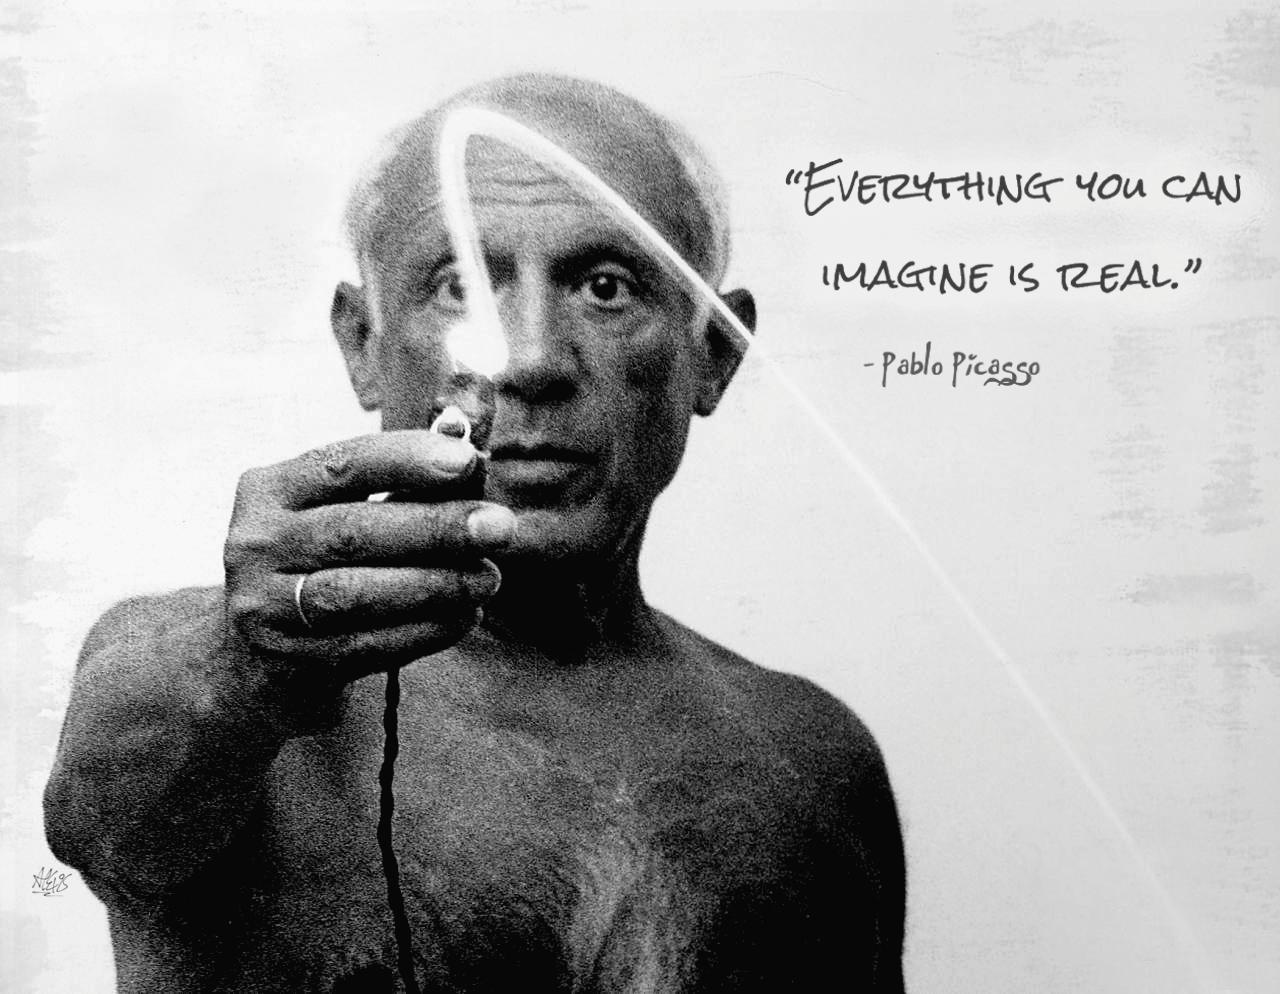 “Everything you can
imagine is real.”
- Pablo Picasso